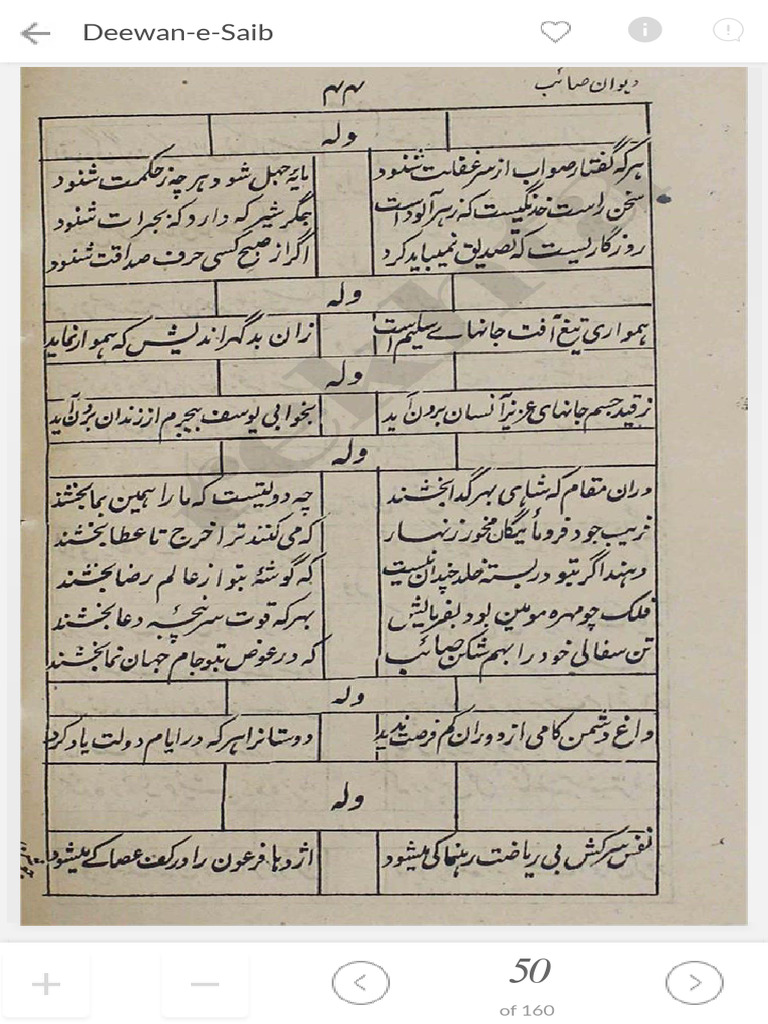 Deewan-e-Saib
دیوان صائب
۴۴
وله
هرکه گفتار صواب از سر غفلت شنود مایهٔ جهل شود هر چه ز حکمت شنود
سخن راست خدنگیست که زهرآلود است جگر شیر که دارد که بجرات شنود
روزگاریست که تصدیق نمیباید کرد اگر از صبح کسی حرف صداقت شنود
وله
همواری تیغ آفت جانهای سلیم است زان بدگهر اندیش که هموار نماید
وله
ز قید جسم جانهای عزیز آسان برون آید بخوابی یوسف بیجرم از زندان برون آید
وله
دران مقام که شاهی بهر گدا بخشند چه دولتیست که ما را همین بما بخشند
فریب جود فرومایگان مخور زنهار که می کنند ترا خرج تا عطا بخشند
دهند اگر بتو دربسته خلد چندان نیست که گوشهٔ بتو از عالم رضا بخشند
فلک چو مهره مومین بود بفرمانش بهر که قوت سرپنجهٔ دعا بخشند
تن سفالی خود را بهم شکن صائب که در عوض بتو جام جهان نما بخشند
وله
داغ دشمن کامی از دوران کم فرصت ندید دوستانرا هر که در ایام دولت یاد کرد
وله
نفس سرکش بی ریاضت رهنما کی میشود اژدها فرعون را در کف عصا کے میشود
50
of 160